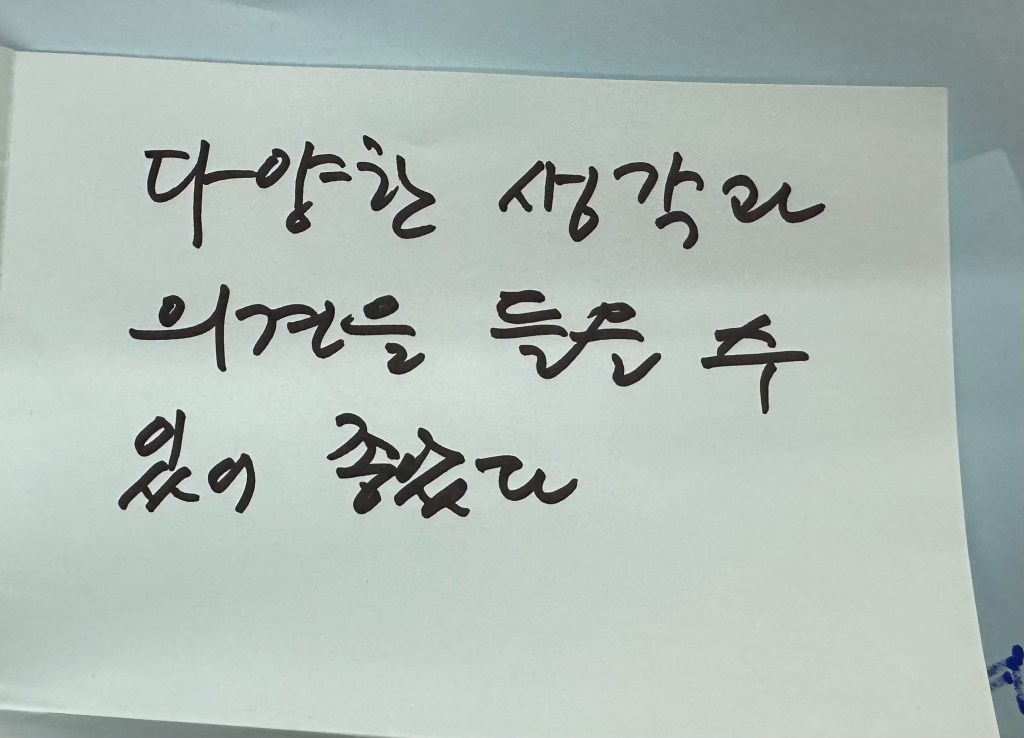 다양한 생각과
의견을 들을 수
있어 좋았다